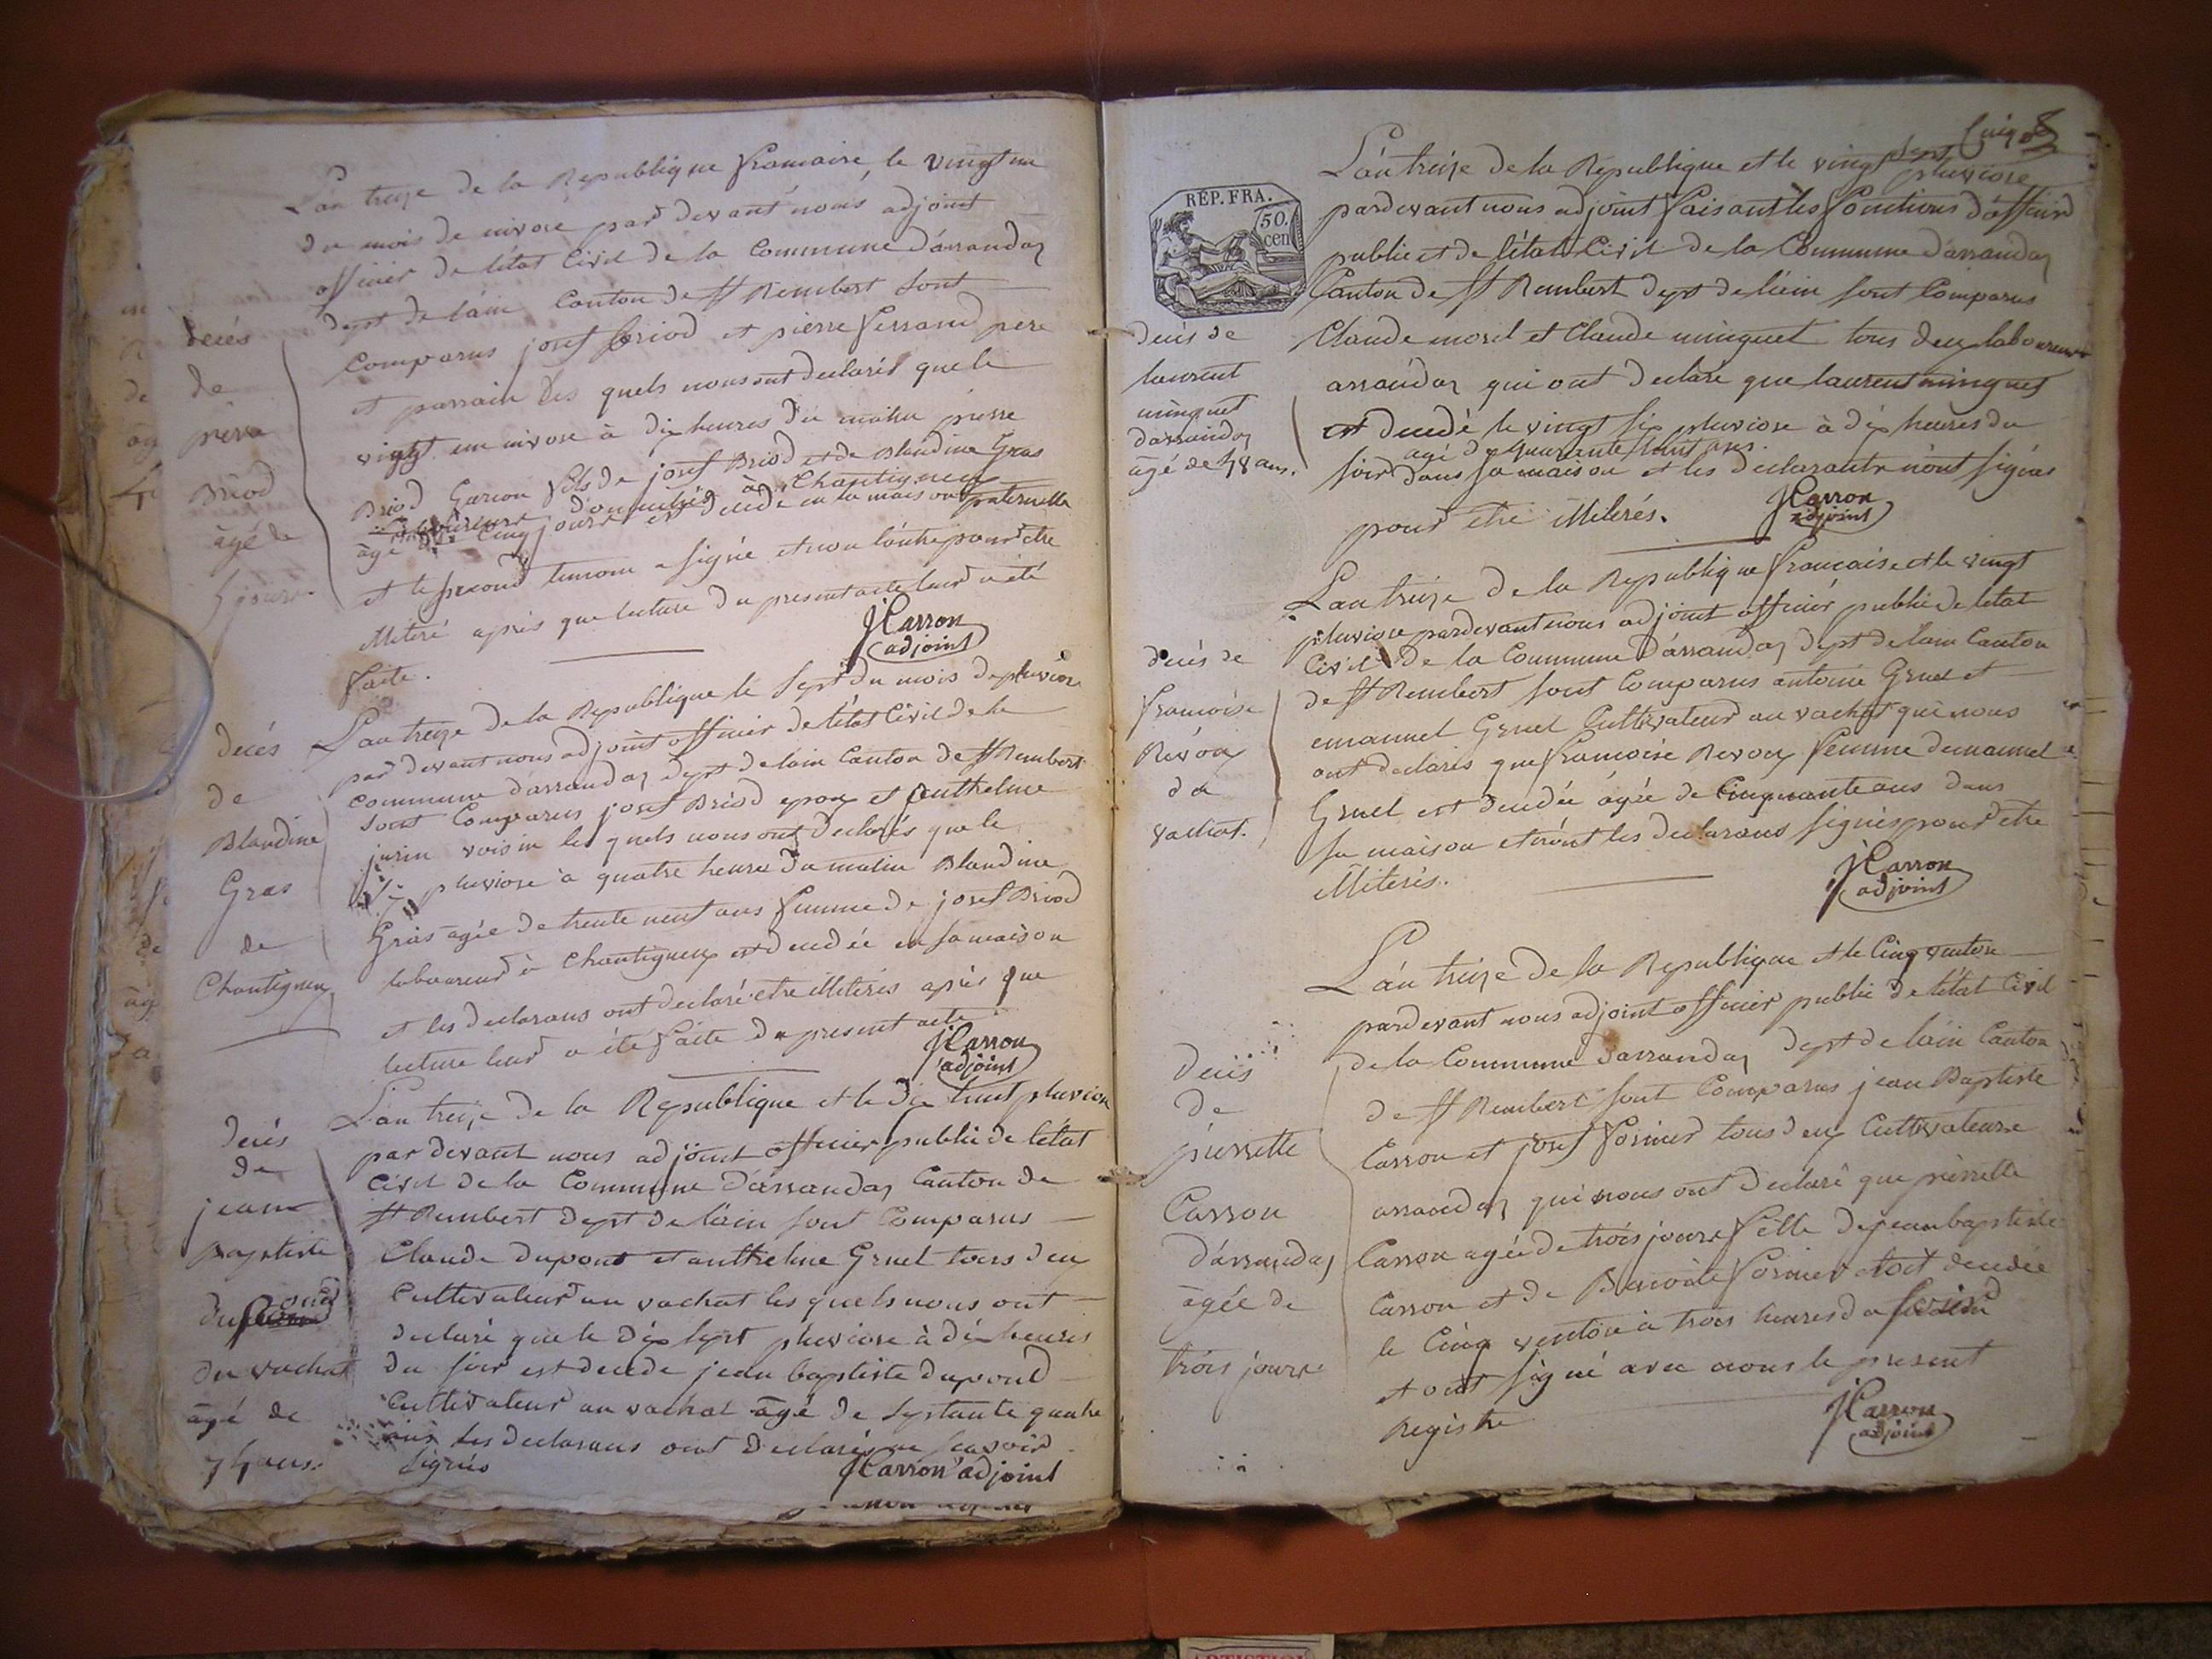 L'an treize de la Republique francaise, le vingt un
du mois de nivose par devant nous adjoint
officier de l'état Civil de la Commune d'arrandas
dept de l'ain Canton de St Rembert sont
Comparus josef Briod et pierre ferrand pere
et parrain les quels nous ont declarés que le
vingt un nivose à dix heures du matin pierre
Briod Garcon fils de josef Briod et de Blandine Gras
Laboureur domiciliés à Chantigneux
âgé de Cinq jours est decedé en la maison paternelle
et le second temoin a signé et non l'autre pour etre
illiteré après que lecture du present acte leur a été
faite.
JCarron
adjoint
decés
de
pierre
Briod
âgé de
5 jours
L'an treize de la Republique le sept du mois de pluviose
par devant nous adjoint officier de l'état Civil de la
commune d'arrandas dept de lain Canton de St Rembert
sont Comparus josef Briod epoux et anthelme
jurin voisin les quels nous ont declarés que le
pluviose à quatre heures du matin Blandine
Gras agée de trente neuf ans femme de josef Briod
laboureur à Chantigneux est decedée en sa maison
et les declarans ont declaré etre illiterés après que
lecture leur a été faite du present acte
JCarron
adjoint
decés
de
Blandine
Gras
de
Chantigneux
L'an treize de la Republique et le dix huit pluviose
par devant nous adjoint officier public de l'état
Civil de la Commune d'arrandas Canton de
St Rembert dept de l'ain sont Comparus
Claude dupont et anthelme Gruel tous deux
Cultivateur au vachat les quels nous ont
declaré que le dix sept pluviose à dix heures
du soir est decedé jean baptiste dupond
Cultivateur au vachat âgé de septante quatre
ans les declarans ont declarés ne scavoir
signés
JCarron adjoint
decés
de
jean
Baptiste
dupond
du vachat
âgé de
74 ans.
L'an treize de la Republique et le vingt sept
pluviose
pardevant nous adjoint faisant les fonctions d'officier
public et de l'état Civil de la Commune d'arrandas
Canton de St Rembert dept de l'ain sont Comparus
Claude morel et Claude minguet tous deux laboureurs
arrandas qui ont declaré que laurent minguet
est decedé le vingt six pluviose à dix heures du
agé de quarante huit ans.
soir dans sa maison et les declarants n'ont signés
pour etre illiterés.
JCarron
adjoint
RÉP. FRA.
50.
cen
decés de
laurent
minguet
darrandas
âgé de 48 ans.
L'an treize de la Republique francaise et le vingt
pluviose pardevant nous adjoint officier public de l'etat
Civil de la Commune d'arrandas dept de lain Canton
de St Rembert sont Comparus antoine Gruel et
emanuel Gruel Cultivateur au vachat qui nous
ont declarés que francoise Revoy femme demanuel
Gruel est decedée âgée de Cinquante ans dans
sa maison et n'ont les declarans signés pour etre
illiterés.
JCarron
adjoint
decés de
francoise
Revoy
du
vachat.
L'an treize de la Republique et le Cinq ventose
pardevant nous adjoint officier public de l'état Civil
de la Commune darrandas dept de l'ain Canton
de St Rembert sont Comparus jean Baptiste
Carron et josef forinier tous deux Cultivateurs
arrandas qui nous ont declaré que pierrette
Carron agée de trois jours fille de jean baptiste
Carron et de forinier est decedée
le Cinq ventose à trois heures du
et ont signé avec nous le present
Registre
JCarron
adjoint
Decés
de
pierrette
Carron
d'arrandas
âgée de
trois jours